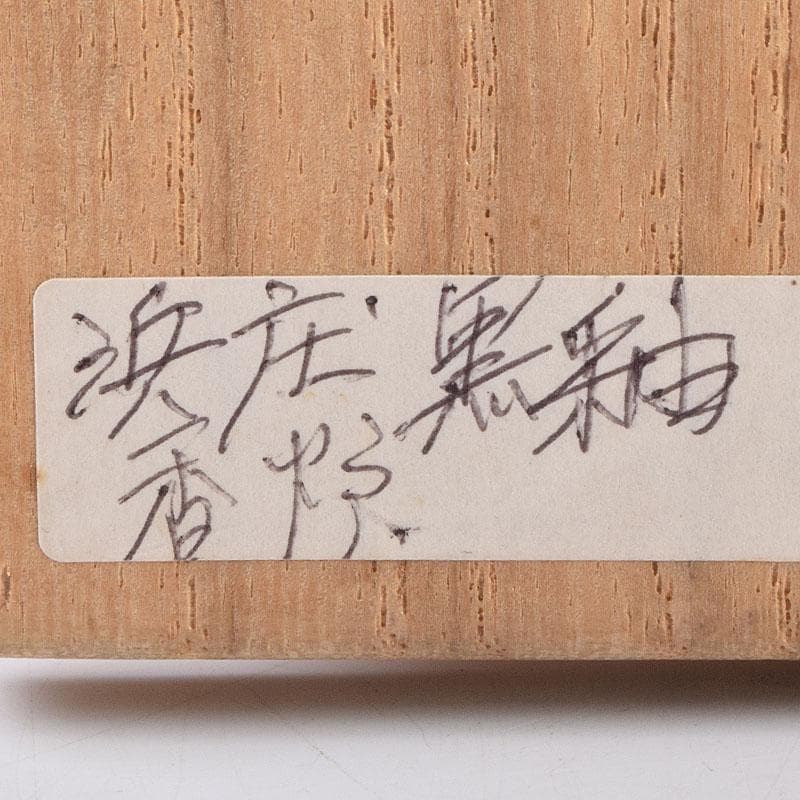 浜庄 黒釉
香炉